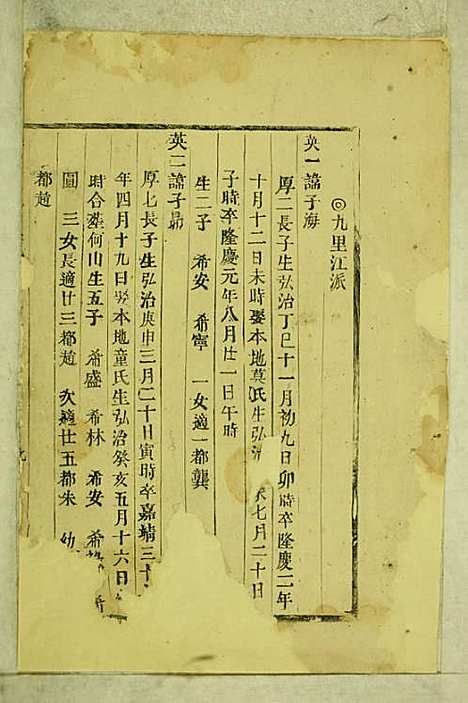 ◎九里江派
英一諱子海
厚二長子生弘治丁巳十一月初九日卯時卒隆慶二年
十月十二日未時娶本地莫氏生弘治 未七月二十日
子時卒隆慶元年八月廿一日午時
生二子 希安 希寧 一女適一都龔
英二諱子昂
厚七長子生弘治庚申三月二十日寅時卒嘉靖三十
年四月十九日 娶本地童氏生弘治癸亥五月十六日
時合塟何山生五子 希盛 希林 希安 希
圓 三女長適廿三都趙 次適廿五都朱 幼
都趙